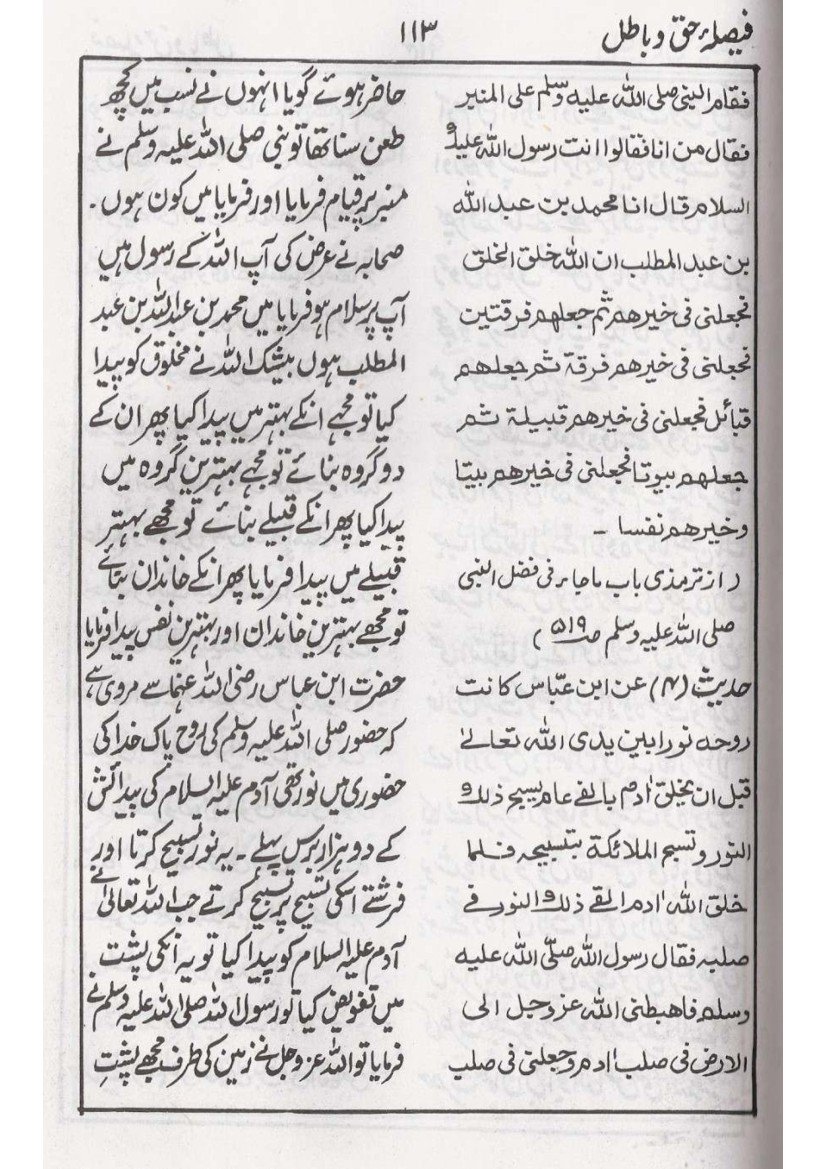 فیصلۂ حق و باطل
۱۱۳
فقام النبی صلی اللہ علیہ وسلم علی المنبر
فقال من انا فقالوا انت رسول اللہ علیک
السلام قال انا محمد بن عبد اللہ
بن عبد المطلب ان اللہ خلق الخلق
فجعلنی فی خیرھم ثم جعلھم فرقتین
فجعلنی فی خیرھم فرقۃ ثم جعلھم
قبائل فجعلنی فی خیرھم قبیلۃ ثم
جعلھم بیوتا فجعلنی فی خیرھم بیتا
وخیرھم نفسا ۔
( از ترمذی باب ماجاء فی فضل النبی
صلی اللہ علیہ وسلم ص۵۱۹ )
حدیث (۴) عن ابن عبّاس کانت
روحہ نورا بین یدی اللہ تعالیٰ
قبل ان یخلق اٰدم بالفے عام یسبح ذلک
النور وتسبح الملائکۃ بتسبیحہ فلما
خلق اللہ اٰدم القے ذلک النور فے
صلبہ فقال رسول اللہ صلّی اللہ علیہ
وسلم فاھبطنی اللہ عزوجل الی
الارض فی صلب اٰدم وجعلنی فی صلب
حاضر ہوئے گویا انہوں نے نسب میں کچھ
طعن سنا تھا تو نبی صلی اللہ علیہ وسلم نے
منبر پر قیام فرمایا اور فرمایا میں کون ہوں ۔
صحابہ نے عرض کی آپ اللہ کے رسول ہیں
آپ پر سلام ہو فرمایا میں محمد بن عبداللہ بن عبد
المطلب ہوں بیشک اللہ نے مخلوق کو پیدا
کیا تو مجھے انکے بہتر میں پیدا کیا پھر ان کے
دو گروہ بنائے تو مجھے بہترین گروہ میں
پیدا کیا پھر انکے قبیلے بنائے تو مجھے بہتر
قبیلے میں پیدا فرمایا پھر انکے خاندان بنائے
تو مجھے بہترین خاندان اور بہترین نفس پیدا فرمایا
حضرت ابن عباس رضی اللہ عنہما سے مروی ہے
کہ حضور صلی اللہ علیہ وسلم کی روح پاک خدا کی
حضوری میں نور تھی آدم علیہ السلام کی پیدائش
کے دو ہزار برس پہلے ۔ یہ نور تسبیح کرتا اور
فرشتے اسکی تسبیح پر تسبیح کرتے جب اللہ تعالیٰ نے
آدم علیہ السلام کو پیدا کیا تو یہ انکی پشت
میں تفویض کیا تو رسول اللہ صلی اللہ علیہ وسلم نے
فرمایا تو اللہ عزوجل نے زمین کی طرف مجھے پشتِ